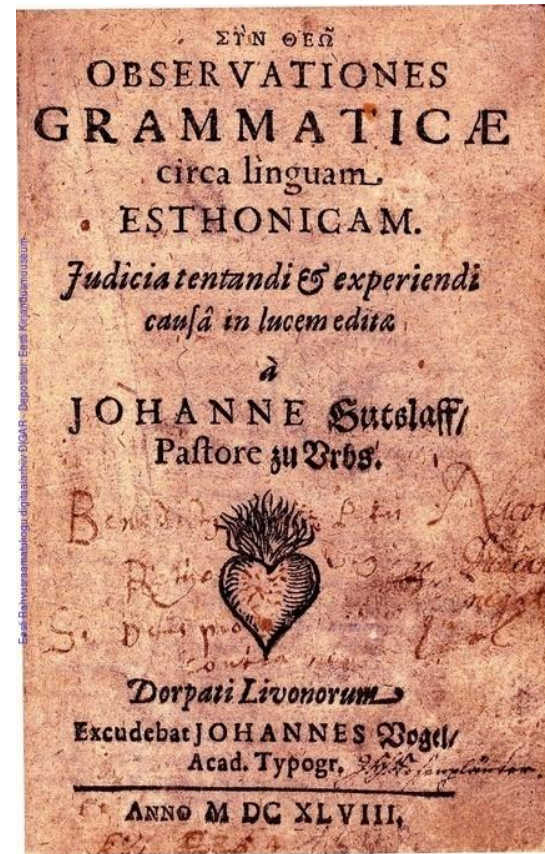 ΣῪΝ ΘΕΩ͂
OBSERVATIONES
GRAMMATICÆ
circa linguam
ESTHONICAM.
Judicia tentandi & experiendi
cauſâ in lucem editæ
à
JOHANNE Gutslaff/
Paſtore zu Vrbs.
Si Deus pro
contra
Dorpati Livonorum
Excudebat JOHANNES Vogel/
Acad. Typogr.
ANNO M DC XLVIII.
Eesti Rahvusraamatukogu digitaalarhiiv DIGAR Depositor: Eesti Kirjandusmuuseum